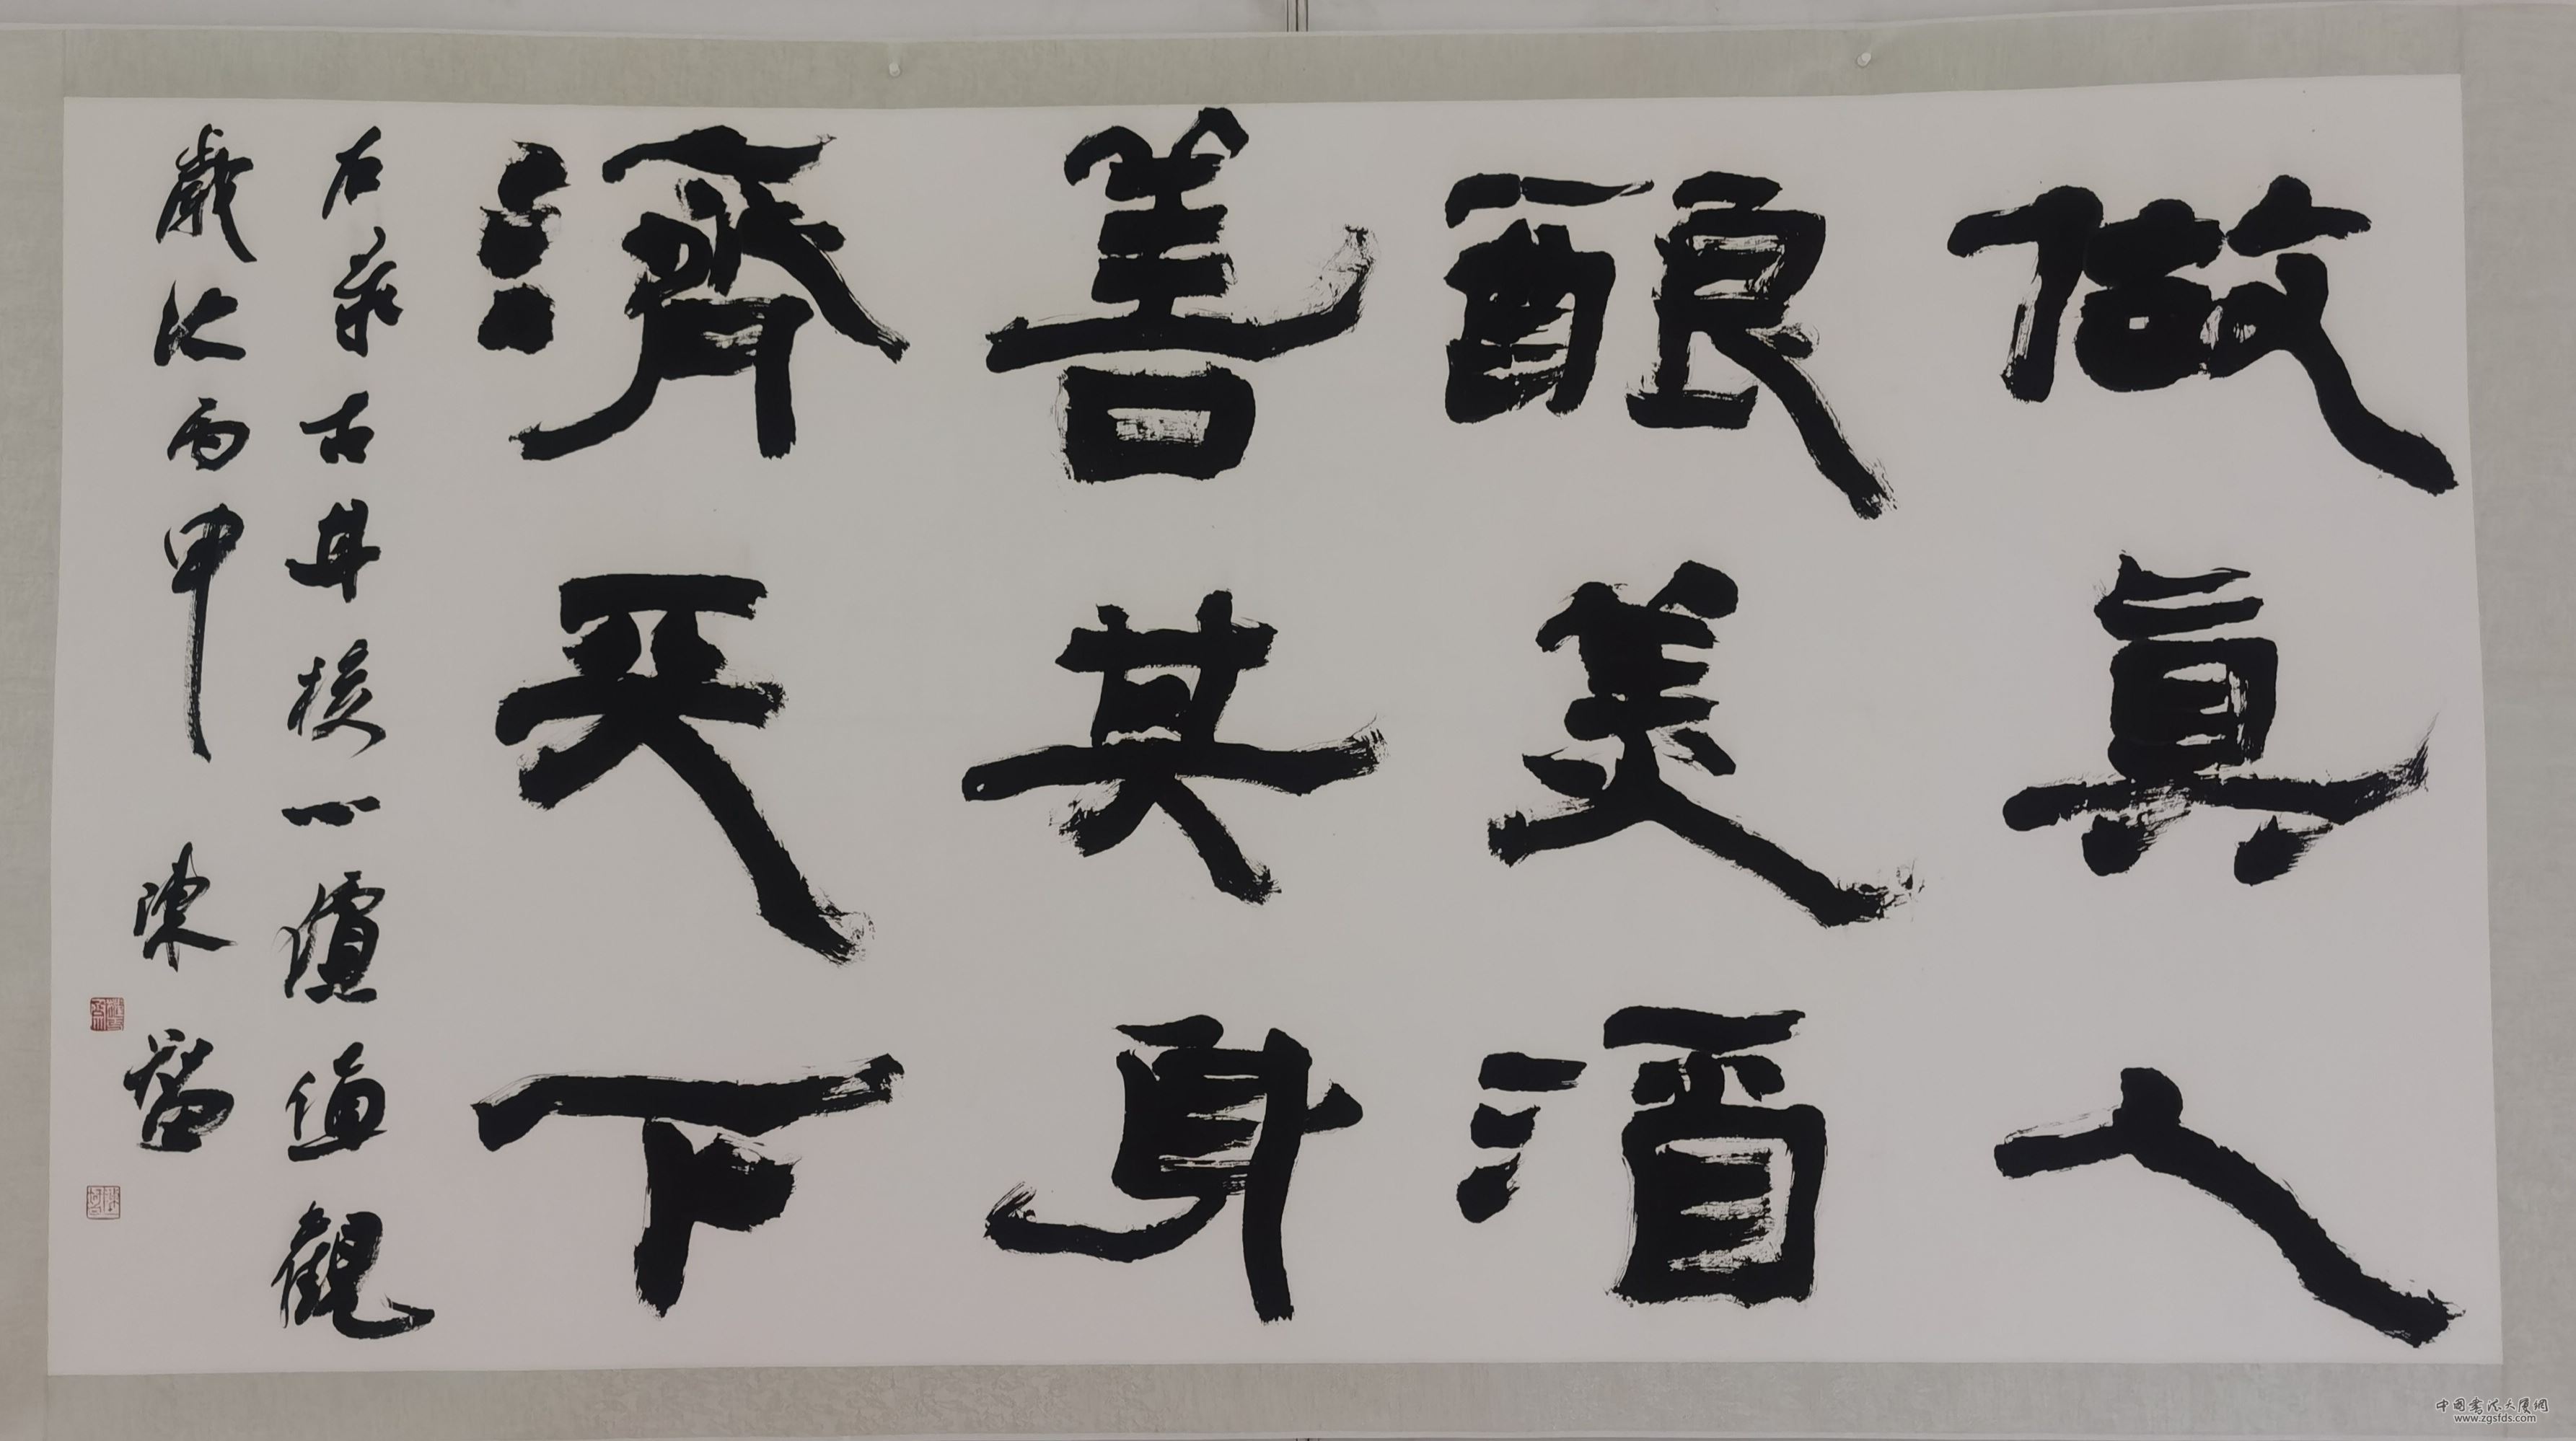 做眞人
酿美酒
善其身
濟天下
右录古井核心價值觀
歲次丙申 陳
中國書法大廈網
www.zgsfds.com